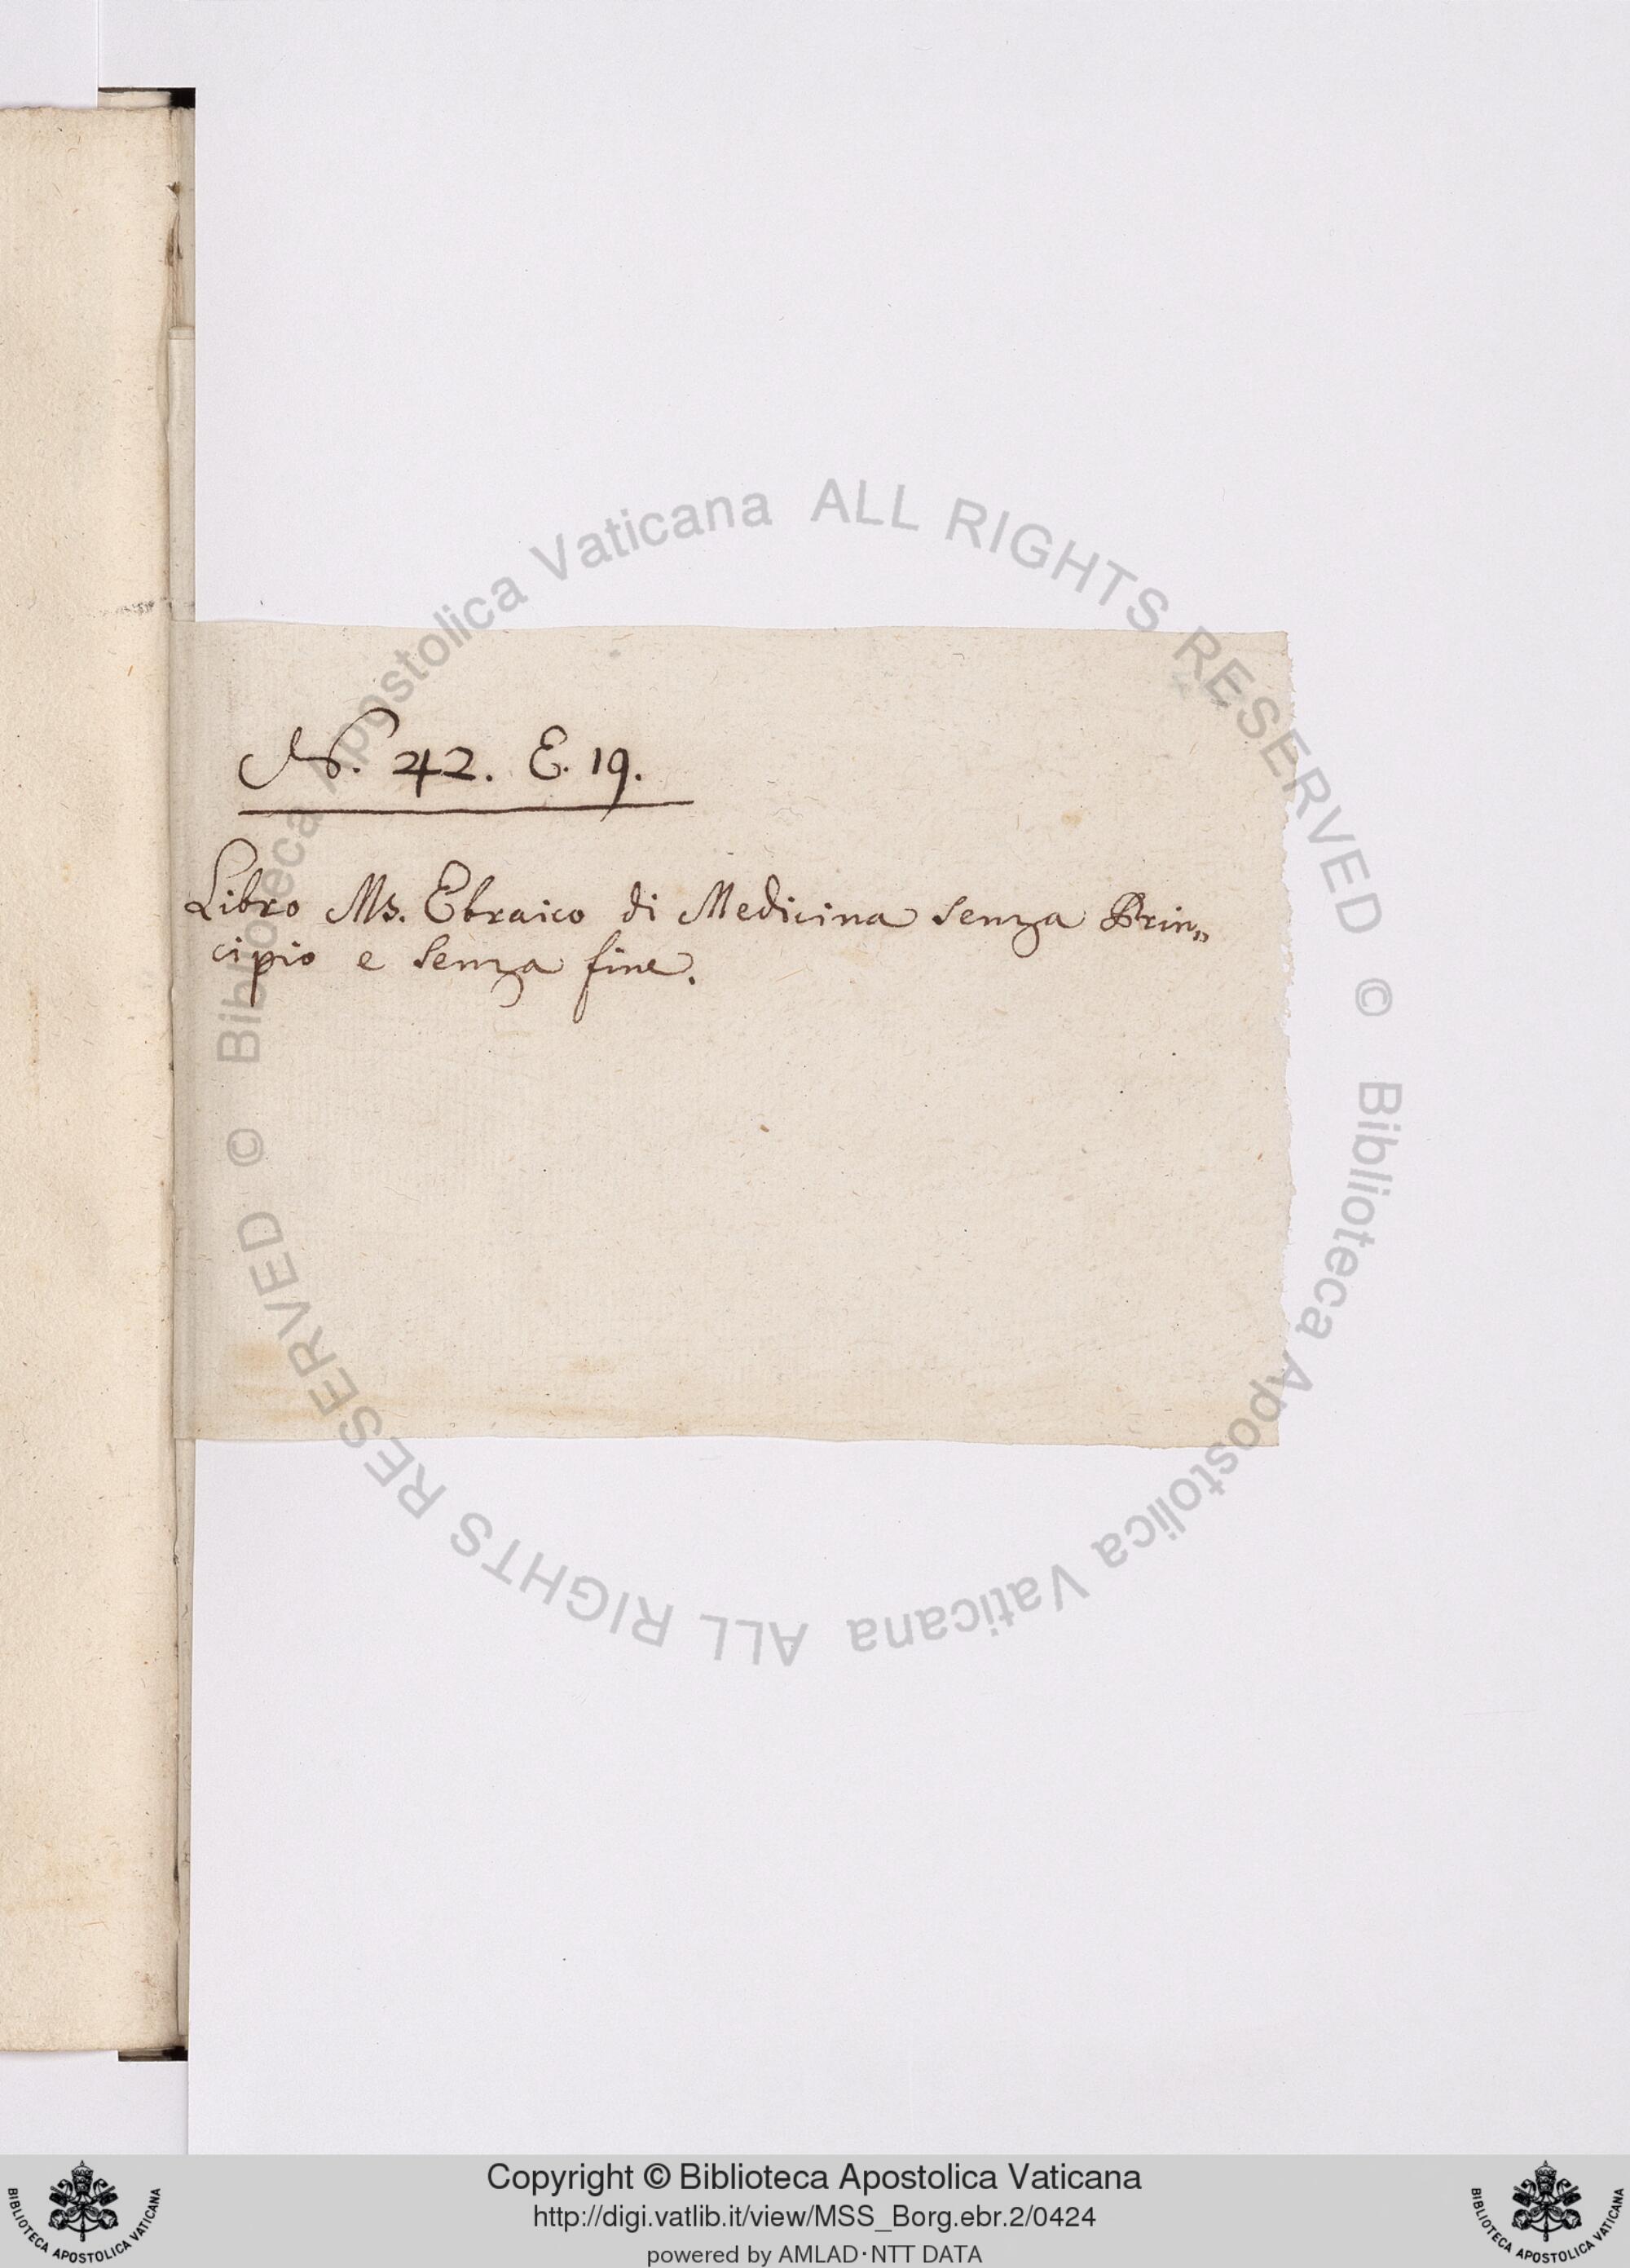 N. 42. E. 19.
Libro Ms. Ebraico di Medicina senza Prin„
cipio e senza fine.
© Biblioteca Apostolica Vaticana ALL RIGHTS RESERVED
© Biblioteca Apostolica Vaticana ALL RIGHTS RESERVED
Copyright © Biblioteca Apostolica Vaticana
http://digi.vatlib.it/view/MSS_Borg.ebr.2/0424
powered by AMLAD·NTT DATA
BIBLIOTECA APOSTOLICA VATICANA
BIBLIOTECA APOSTOLICA VATICANA